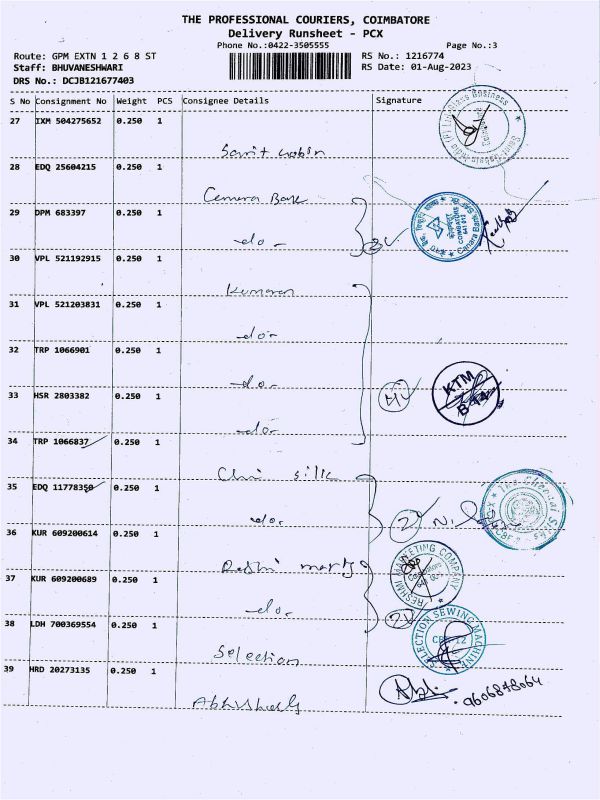 THE PROFESSIONAL COURIERS, COIMBATORE
Delivery Runsheet - PCX
Phone No.:0422-3505555
Page No.:3
Route: GPM EXTN 1 2 6 8 ST
RS No.: 1216774
Staff: BHUVANESHWARI
RS Date: 01-Aug-2023
DRS No.: DCJB121677403
S No Consignment No Weight PCS Consignee Details Signature
27 IXM 504275652 0.250 1
28 EDQ 25604215 0.250 1
Canara Bank
29 DPM 683397 0.250 1
-do-
30 VPL 521192915 0.250 1
Kumaran
31 VPL 521203831 0.250 1
-do-
32 TRP 1066901 0.250 1
-do-
33 HSR 2803382 0.250 1
-do-
KTM
34 TRP 1066837 0.250 1
silk
35 EDQ 11778350 0.250 1
-do-
36 KUR 609200614 0.250 1
RESHMI MARKETING COMPANY
37 KUR 609200689 0.250 1
-do-
38 LDH 700369554 0.250 1
Selection
SELECTION SEWING MACHINE
39 HRD 20273135 0.250 1
Abhisheek
9606848064